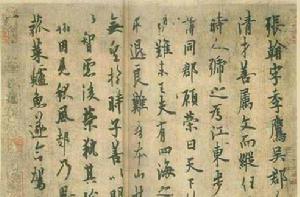 張翰字季鷹吳郡
清才善屬文而縱任
時人號之為江東步
謂同郡顧榮曰天下
難未已夫有四海之
退良難吾本山
無望於時子善以明
智慮後榮執其
因見秋風起乃
菰菜鱸魚遂命駕